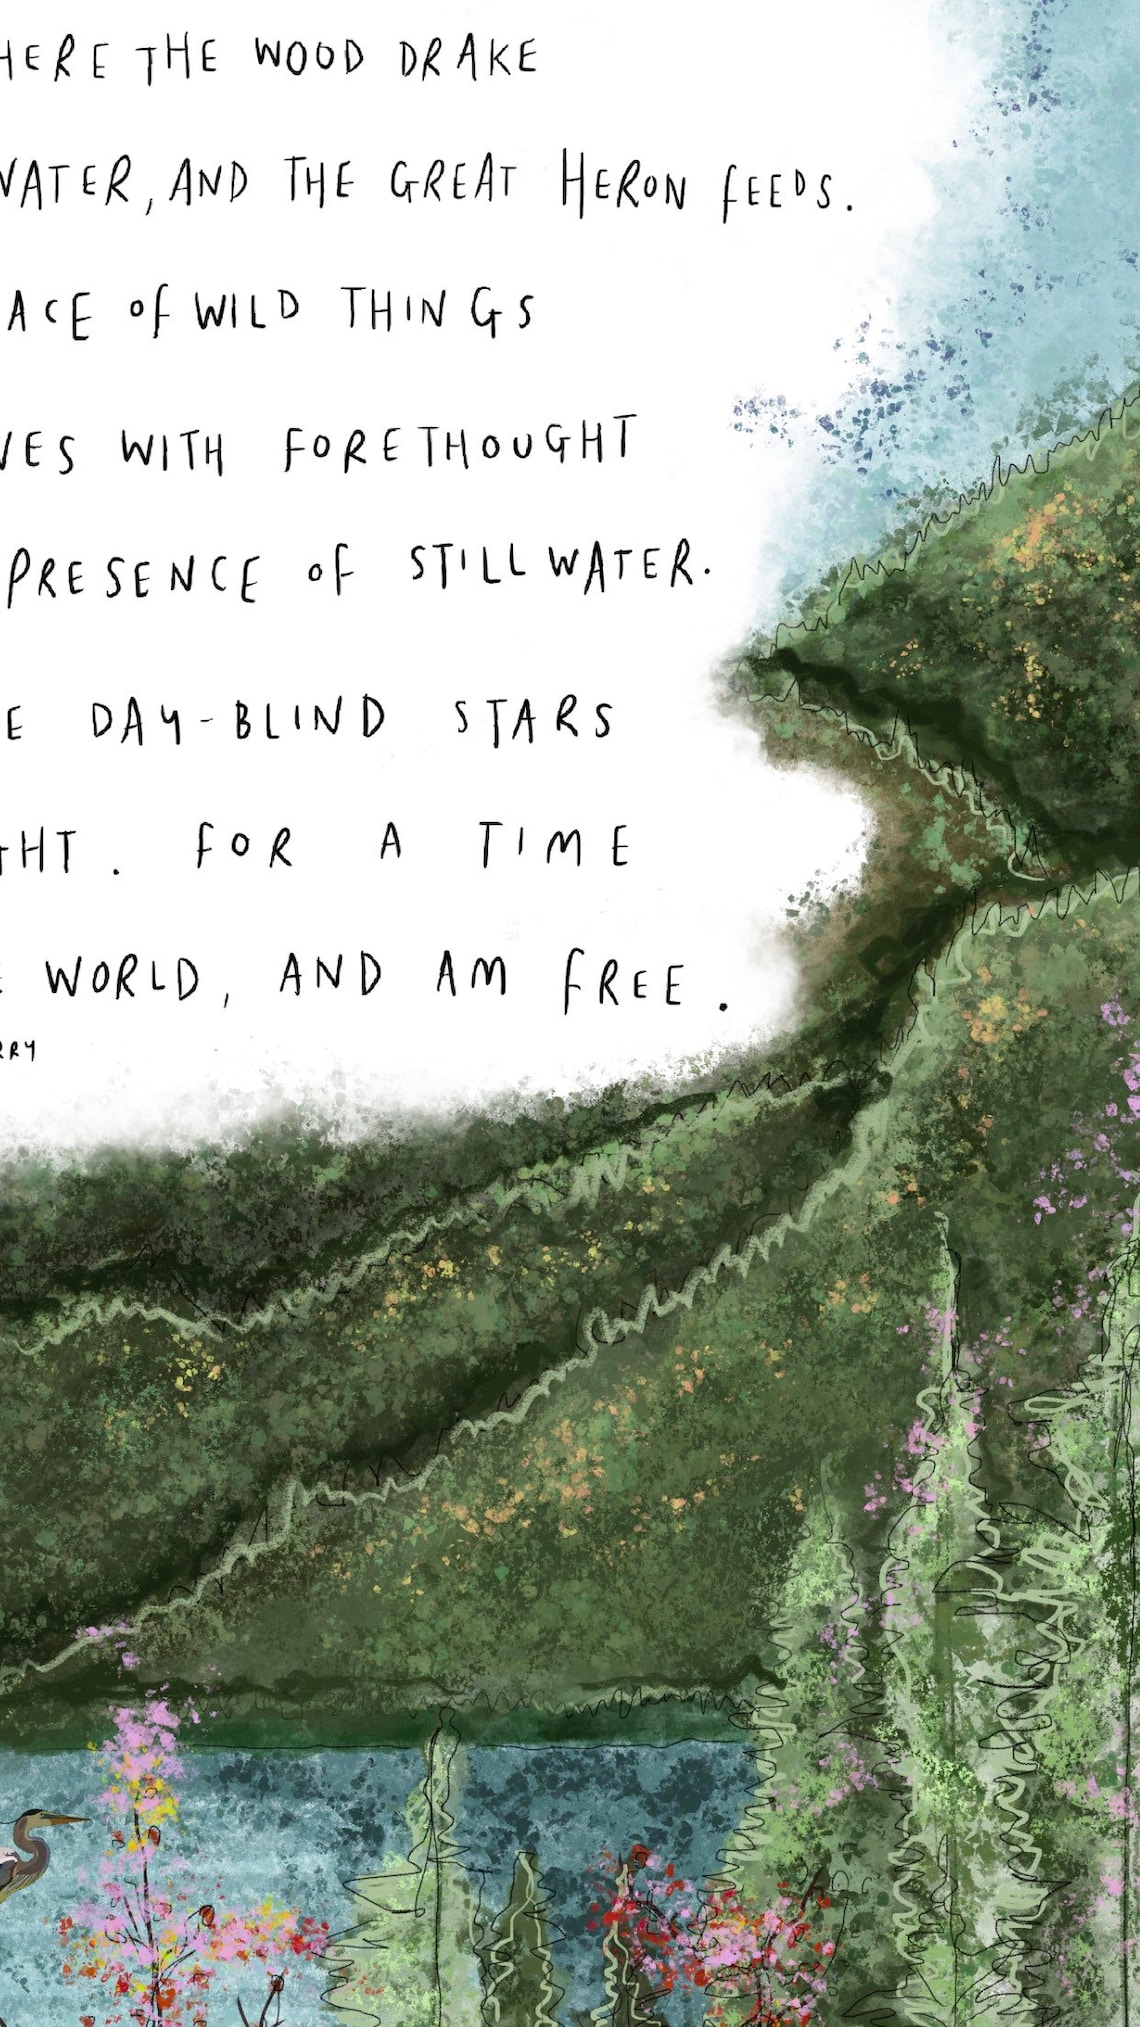 HERE THE WOOD DRAKE
WATER, AND THE GREAT HERON FEEDS.
ACE OF WILD THINGS
VES WITH FORETHOUGHT
PRESENCE OF STILL WATER.
E DAY-BLIND STARS
GHT. FOR A TIME
E WORLD, AND AM FREE.
RRY